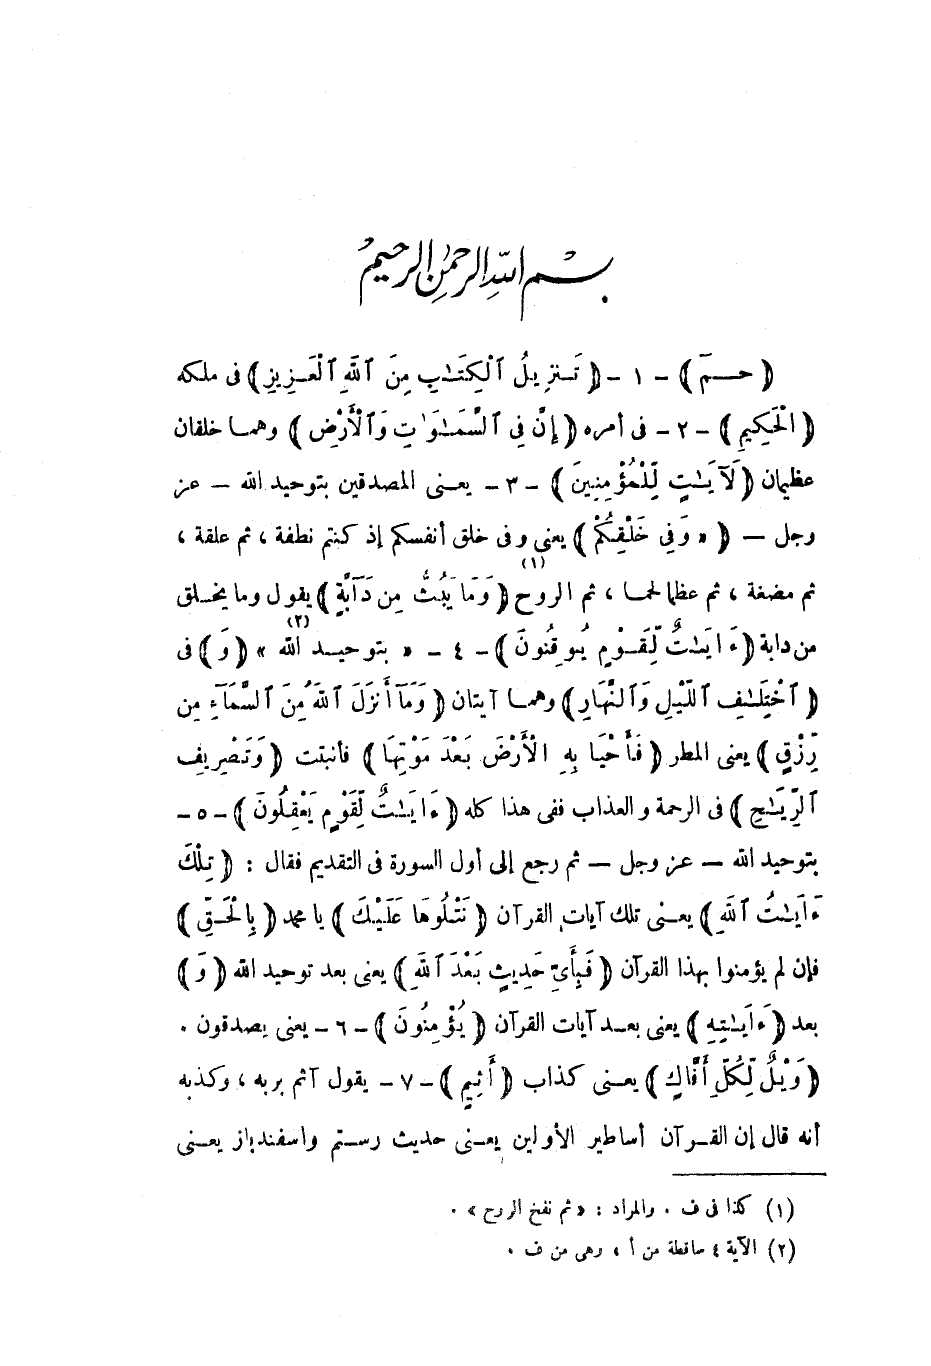 بسم الله الرحمن الرحيم
﴿ حـمۤ ﴾ - ١ - ﴿ تَنزِيلُ ٱلْكِتَـٰبِ مِنَ ٱللَّهِ ٱلْعَزِيزِ ﴾ فى ملكه
﴿ الْحَكِيمِ ﴾ - ٢ - فى أمره ﴿ إِنَّ فِى ٱلسَّمَـٰوَ ٰتِ وَٱلْأَرْضِ ﴾ وهما خلقان
عظيمان ﴿ لَآيَـٰتٍ لِّلْمُؤْمِنِينَ ﴾ - ٣ - يعنى المصدقين بتوحيد الله — عز
وجل — ﴿ « وَفِى خَلْقِكُمْ ﴾ يعنى وفى خلق أنفسكم إذ كنتم نطفة ، ثم علقة ،
ثم مضغة ، ثم عظما لحما ، ثم الروح (١) ﴿ وَمَا يَبُثُّ مِن دَآبَّةٍ ﴾ يقول وما يخلق
من دابة ﴿ ءَايَـٰتٌ لِّقَوْمٍ يُوقِنُونَ ﴾ - ٤ - « بتوحيد الله » (٢) ﴿ وَ ﴾ فى
﴿ ٱخْتِلَـٰفِ ٱللَّيْلِ وَٱلنَّهَارِ ﴾ وهما آيتان ﴿ وَمَآ أَنزَلَ ٱللَّهُ مِنَ ٱلسَّمَآءِ مِن
رِّزْقٍ ﴾ يعنى المطر ﴿ فَأَحْيَا بِهِ الْأَرْضَ بَعْدَ مَوْتِهَا ﴾ فأنبتت ﴿ وَتَصْرِيفِ
ٱلرِّيَـٰحِ ﴾ فى الرحمة والعذاب ففى هذا كله ﴿ ءَايَـٰتٌ لِّقَوْمٍ يَعْقِلُونَ ﴾ - ٥ -
بتوحيد الله — عز وجل — ثم رجع إلى أول السورة فى التقديم فقال : ﴿ تِلْكَ
ءَايَـٰتُ ٱللَّهِ ﴾ يعنى تلك آيات القرآن ﴿ نَتْلُوهَا عَلَيْكَ ﴾ يا محمد ﴿ بِالْحَقِّ ﴾
فإن لم يؤمنوا بهذا القرآن ﴿ فَبِأَىِّ حَدِيثٍ بَعْدَ ٱللَّهِ ﴾ يعنى بعد توحيد الله ﴿ وَ ﴾
بعد ﴿ ءَايَـٰتِهِ ﴾ يعنى بعد آيات القرآن ﴿ يُؤْمِنُونَ ﴾ - ٦ - يعنى يصدقون .
﴿ وَيْلٌ لِّكُلِّ أَفَّاكٍ ﴾ يعنى كذاب ﴿ أَثِيمٍ ﴾ - ٧ - يقول آثم بربه ، وكذبه
أنه قال إن القرآن أساطير الأولين يعنى حديث رستم واسفندباز يعنى
(١) كذا فى ف . والمراد : « ثم نفخ الروح » .
(٢) الآية ٤ ساقطة من أ ، وهى من ف .